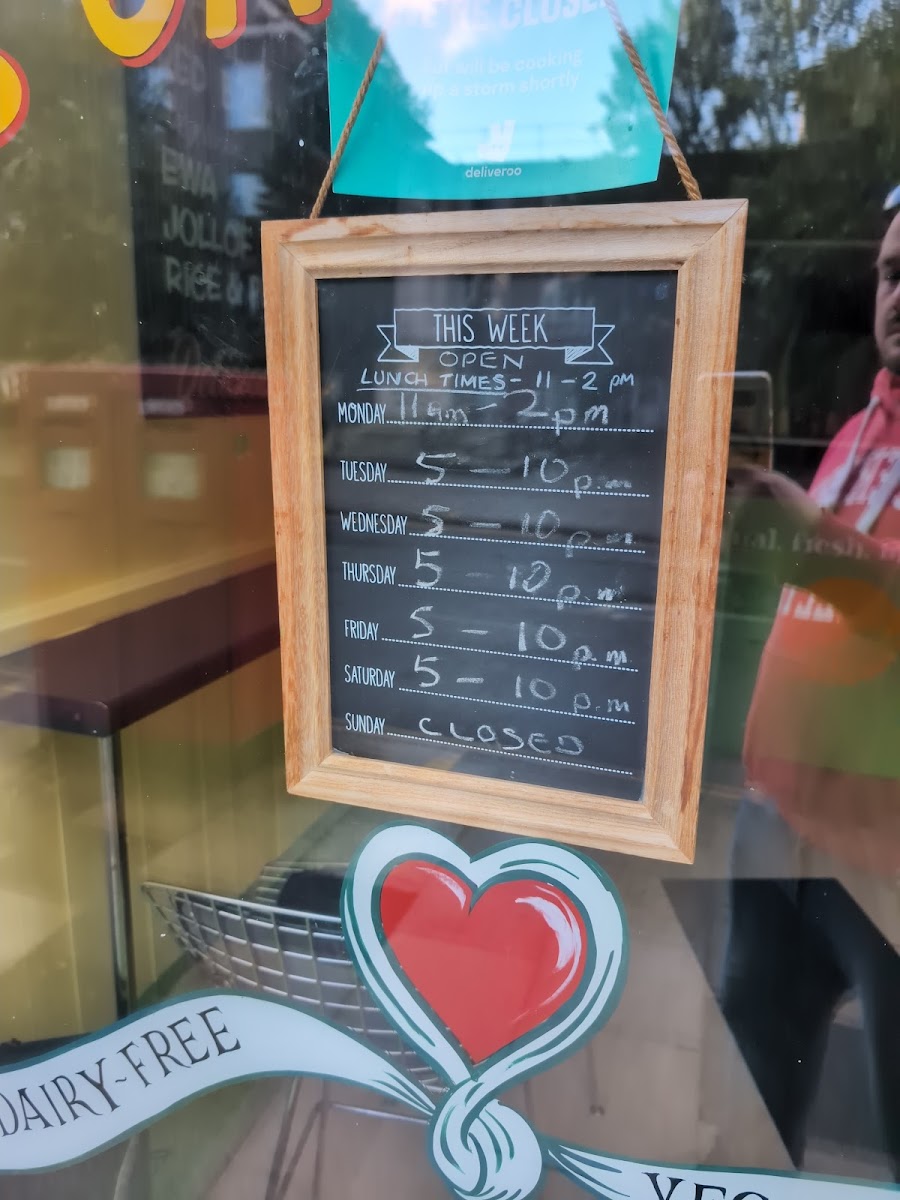 will be cooking
up a storm shortly
deliveroo
EWA
JOLLOF
RICE &
THIS WEEK
OPEN
LUNCH TIMES - 11 - 2 pm
MONDAY 11am - 2pm
TUESDAY 5 - 10 p.m
WEDNESDAY 5 - 10 p.m
THURSDAY 5 - 10 p.m
FRIDAY 5 - 10 p.m
SATURDAY 5 - 10 p.m
SUNDAY CLOSED
DAIRY-FREE